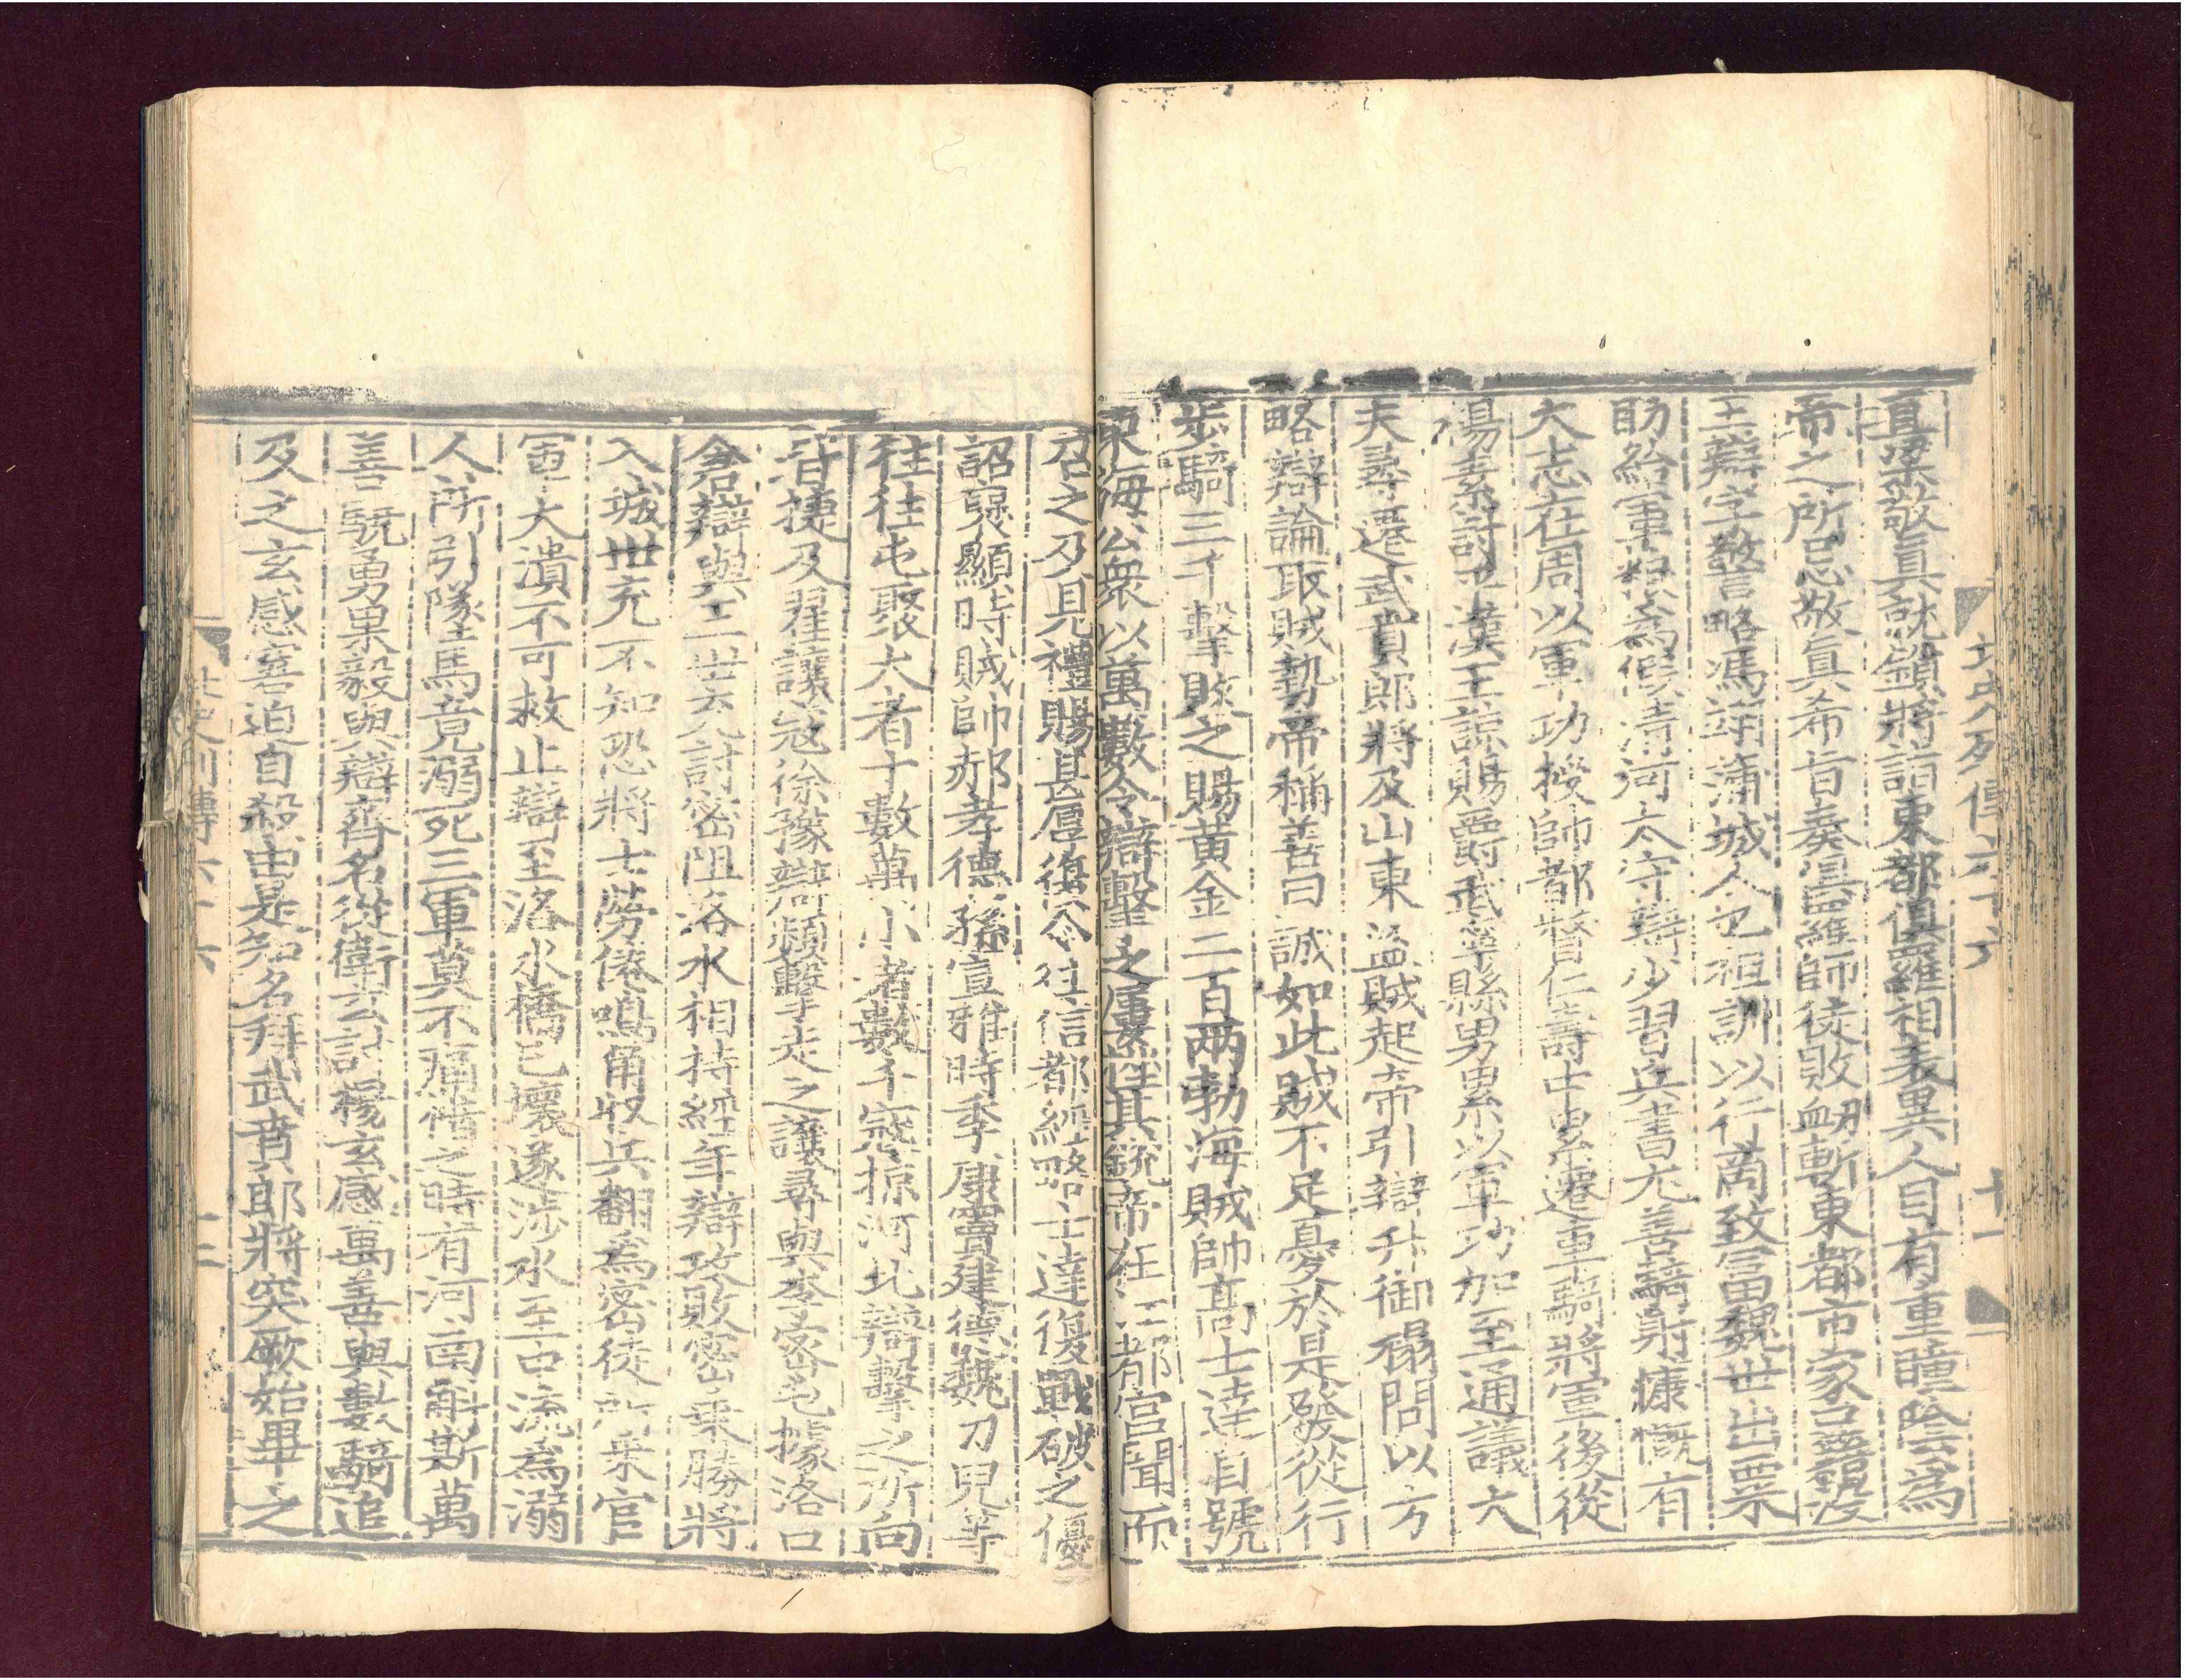 北史列傳六十六
十一
直梁敬真就鎖將詣東都俱羅相表異人目有重瞳陰爲
帝之所忌敬真希旨奏俱羅師徒敗衂斬東都市家口籍沒
王辯字警略馮翊蒲城人也祖訓以行商致富魏世出粟
助給軍糧爲假清河太守辯少習兵書尤善騎射慷慨有
大志在周以軍功授帥都督仁壽中累遷車騎將軍後從
楊素討平漢王諒賜爵武寧縣男累以軍功加至通議大
夫尋遷武賁郎將及山東盗賊起帝引辯升御榻問以方
略辯論取賊勢帝稱善曰誠如此賊不足憂於是發從行
步騎三千擊敗之賜黃金二百两勃海賊帥高士達自號
東海公衆以萬數令辯擊之屢挫其銳帝在江都宮聞而
召之及見禮賜甚厚復令往信都經略士達復戰破之優
詔褒顯時賊帥郝孝德孫宣雅時季康竇建德魏刀兒等
往往屯聚大者十數萬小者數千寇掠河北辯擊之所向
皆捷及翟讓寇徐豫辯頻擊走之讓尋與李密屯據洛口
倉辯與王世充討密阻洛水相持經年辯攻敗密乗勝將
入城世充不知恐將士勞倦鳴角収兵翻爲密徒所乗官
軍大潰不可救止辯至洛水橋已壞遂涉水至中流爲溺
人所引墜馬竟溺死三軍莫不痛惜之時有河南斛斯萬
善驍勇果毅與辯齊名從衛玄討楊玄感萬善與數騎追
及之玄感窘迫自殺由是知名拜武賁郎將突厥始畢之
北史列傳六十六
十二